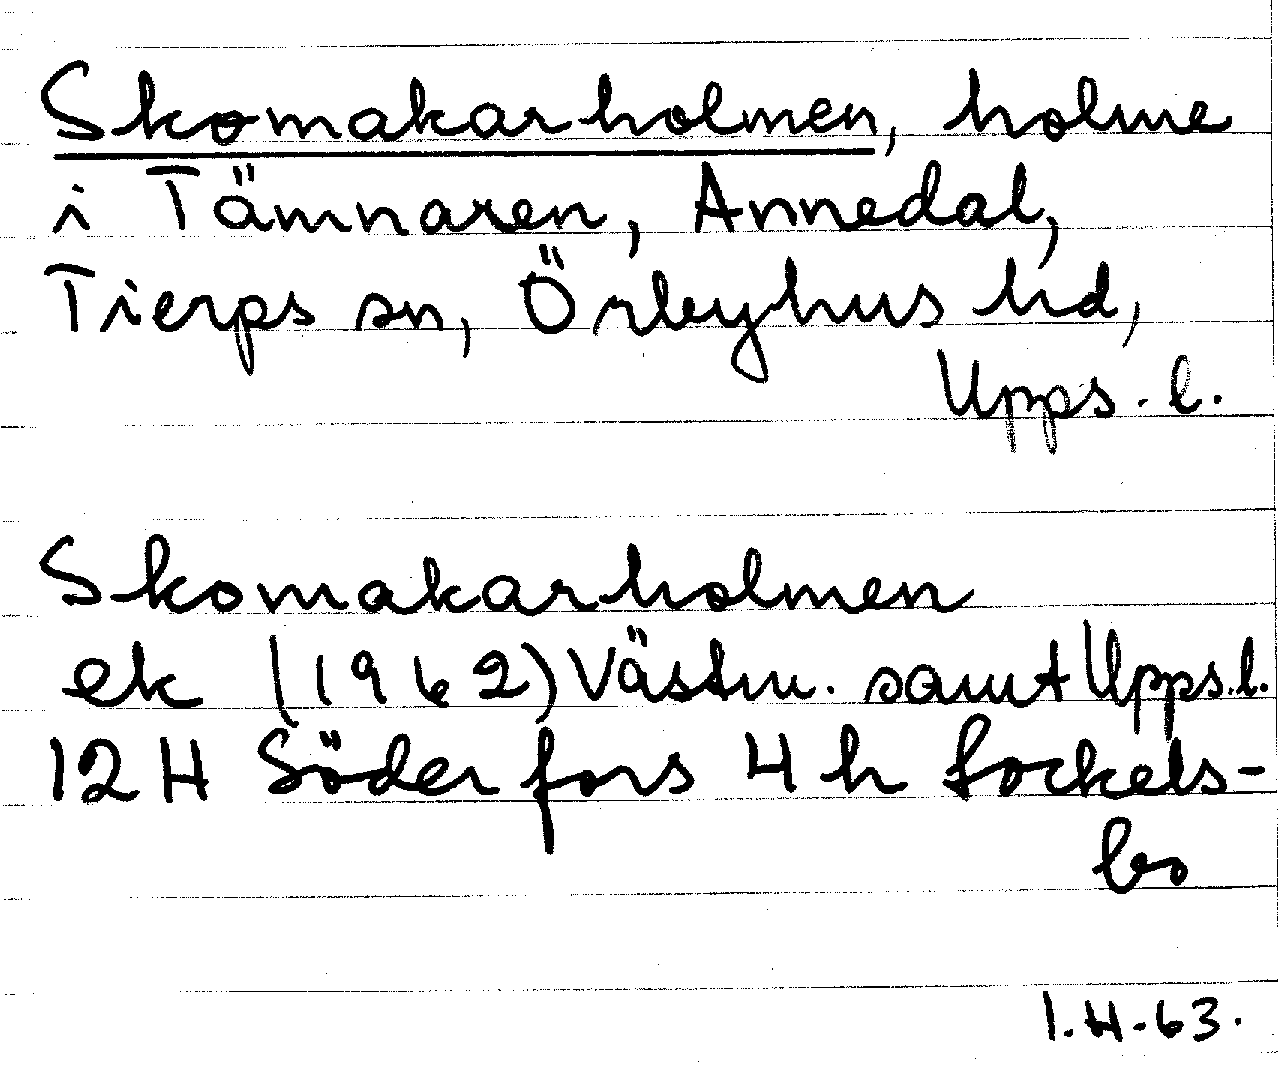 Skomakarholmen, holme
i Tämnaren, Annedal,
Tierps sn, Örbyhus hd,
Upps. l.
Skomakarholmen
ek (1962) Västm. samt Upps. l.
12 H Söderfors 4 h Sockels-
bo
1.4.63.